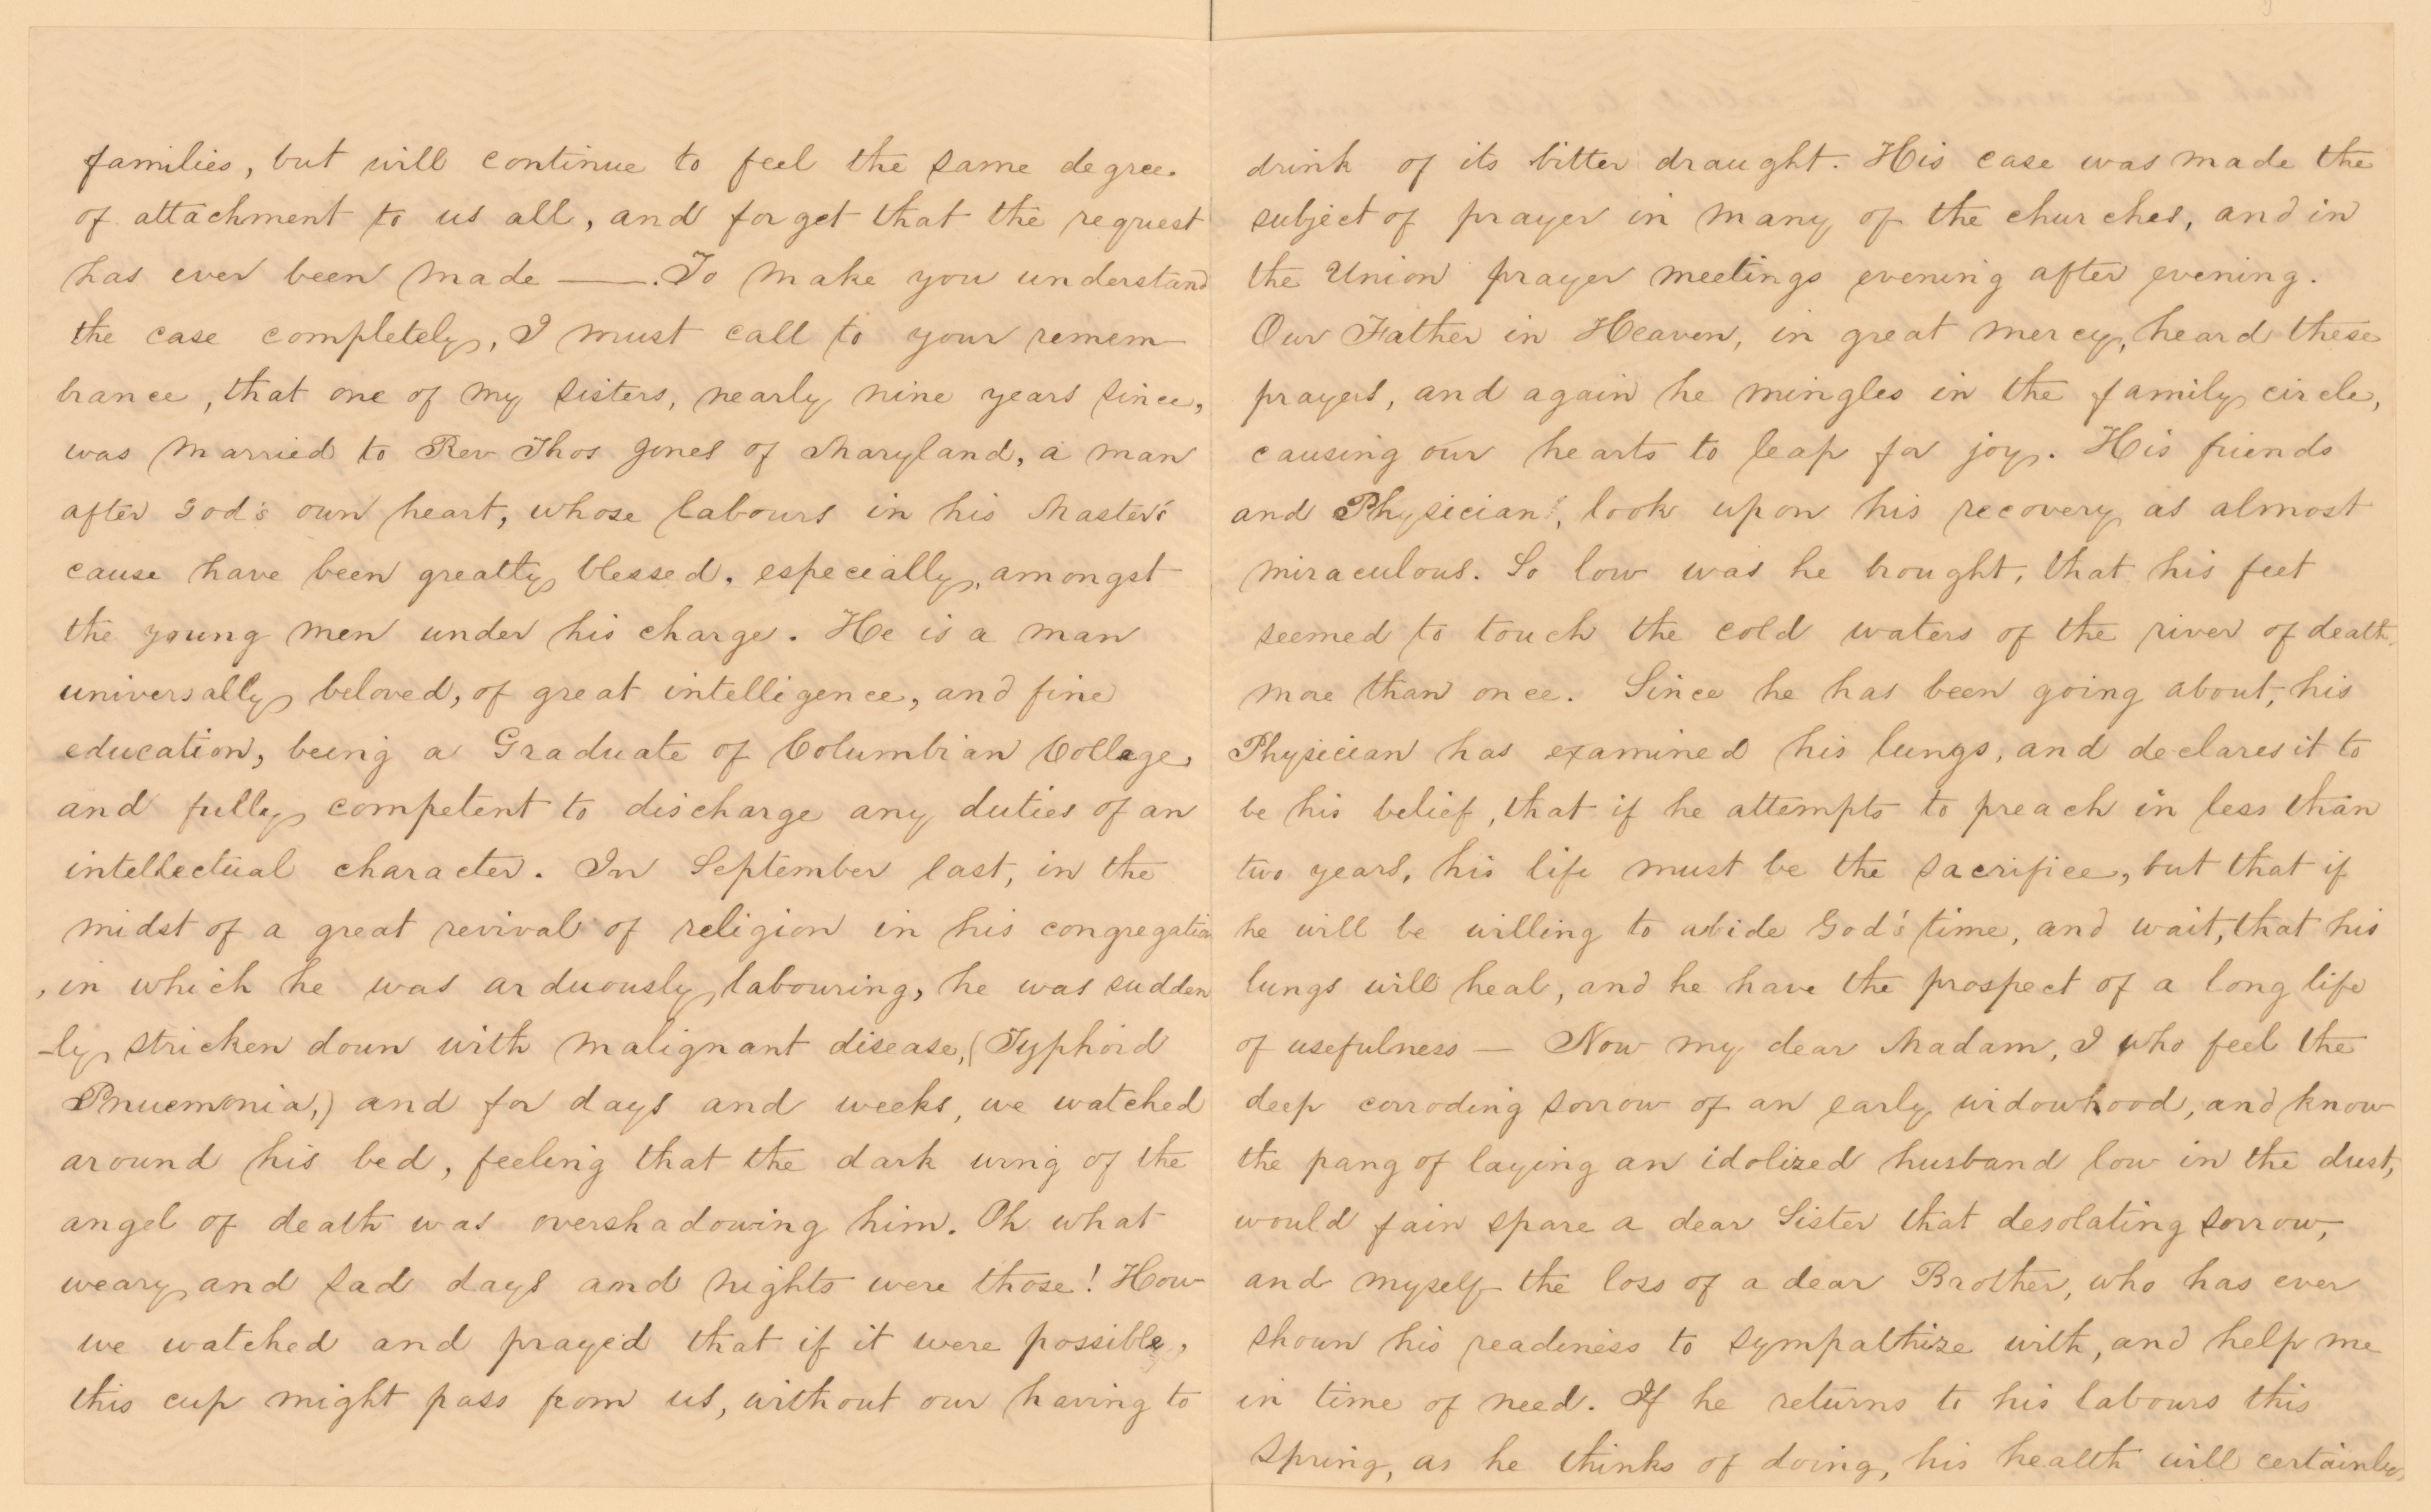 families, but will continue to feel the same degree.
of attachment to us all, and forget that the request
has ever been made ——. To make you understand
the case completely, I must call to your remem–
brance, that one of my sisters, nearly nine years since,
was married to Rev Thos Jones of Maryland, a man
after God's own heart, whose labours in his Master's
cause have been greatly blessed, especially, amongst
the young men under his charge. He is a man
universally beloved, of great intelligence, and fine
education, being a Graduate of Columbian College,
and fully competent to discharge any duties of an
intellectual character. In September last, in the
midst of a great revival of religion in his congregation
, in which he was arduously labouring, he was sudden
–ly stricken down with malignant disease, (Typhoid
Pnuemonia,) and for days and weeks, we watched
around his bed, feeling that the dark wing of the
angel of death was overshadowing him. Oh what
weary and sad days and nights were those! How
we watched and prayed that if it were possible,
this cup might pass from us, without our having to
drink of its bitter draught. His case was made the
subject of prayer in many of the churches, and in
the Union prayer meetings evening after evening.
Our Father in Heaven, in great mercy, heard these
prayers, and again he mingles in the family circle,
causing our hearts to leap for joy. His friends
and Physicians, look upon his recovery as almost
miraculous. So low was he brought, that his feet
seemed to touch the cold waters of the river of death
more than once. Since he has been going about, his
Physician has examined his lungs, and declares it to
be his belief, that if he attempts to preach in less than
two years, his life must be the sacrifice, but that if
he will be willing to abide God's time, and wait, that his
lungs will heal, and he have the prospect of a long life
of usefulness — Now my dear Madam, I who feel the
deep corroding sorrow of an early widowhood, and know
the pang of laying an idolized husband low in the dust,
would fain spare a dear Sister that desolating sorrow,
and myself the loss of a dear Brother, who has ever
shown his readiness to sympathize with, and help me
in time of need. If he returns to his labours this
spring, as he thinks of doing, his health will certainly